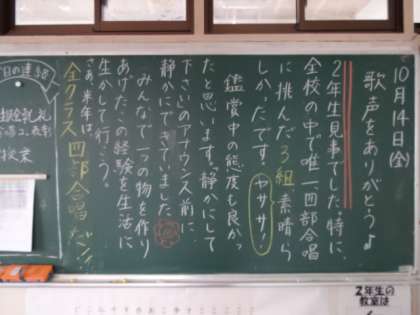 10月14日(金)
歌声をありがとう♪
2年生見事でした。特に、
全校の中で唯一、四部合唱
に挑んだ3組、素晴ら
しかったです。ヤササ!
鑑賞中の態度も良かっ
たと思います。静かにして
下さいのアナウンス前に
静かにできていました。
みんなで一つの物を作り
あげたこの経験を生活に
生かして行こう。
さぁ、来年は、
全クラス四部合唱だン!
日の連絡
授業
2年生の
教室は